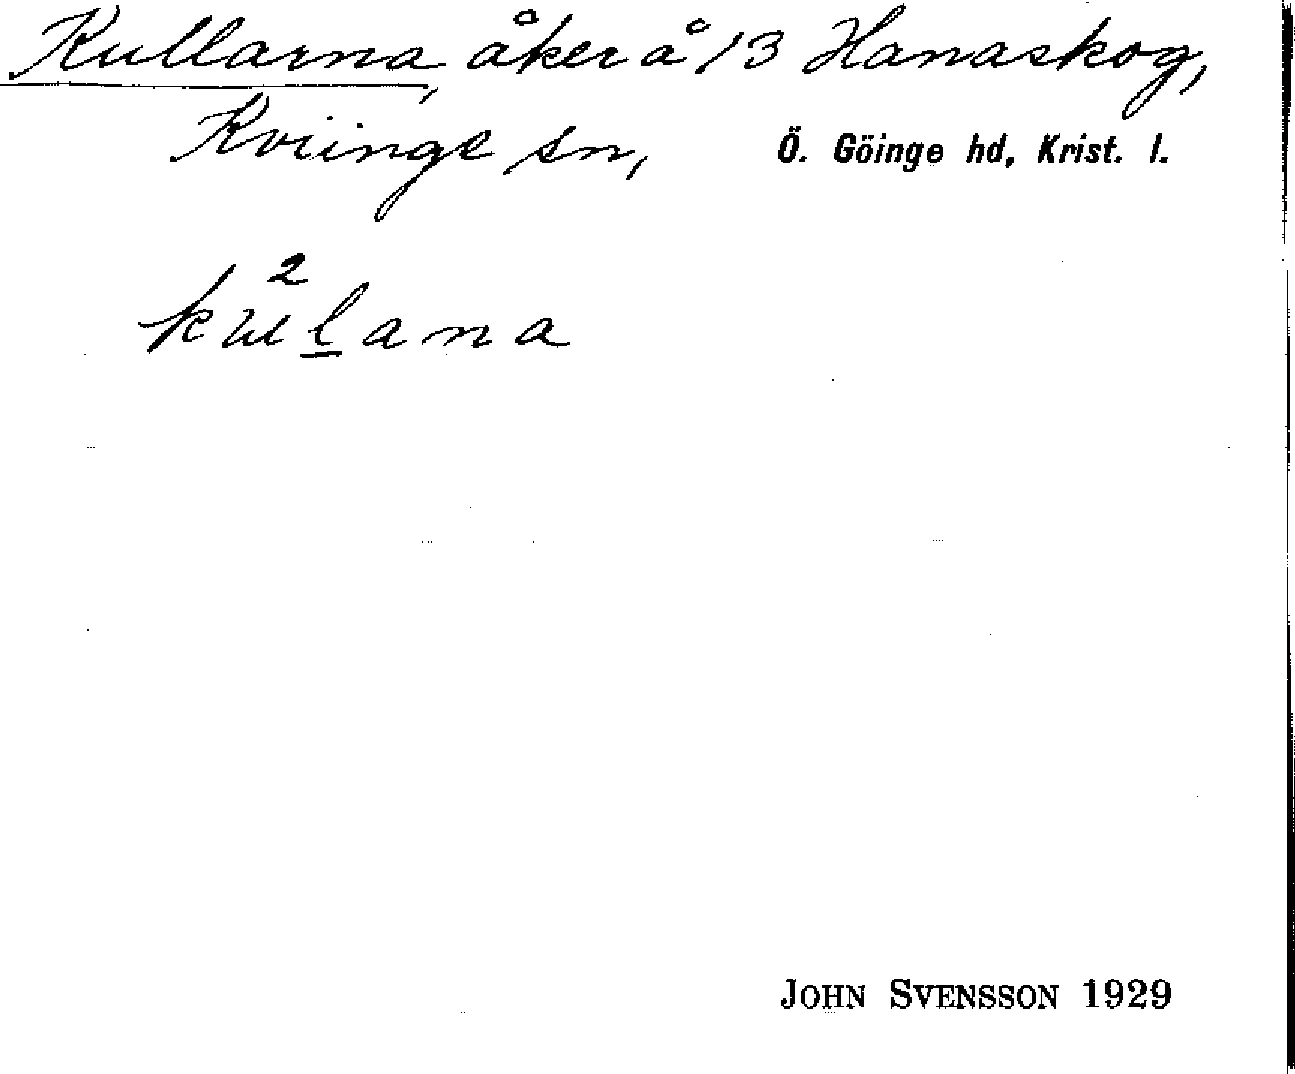 Kullarna, åker å 13 Hanaskog,
Kviinge sn, Ö. Göinge hd, Krist. l.
2
kulana
JOHN SVENSSON 1929